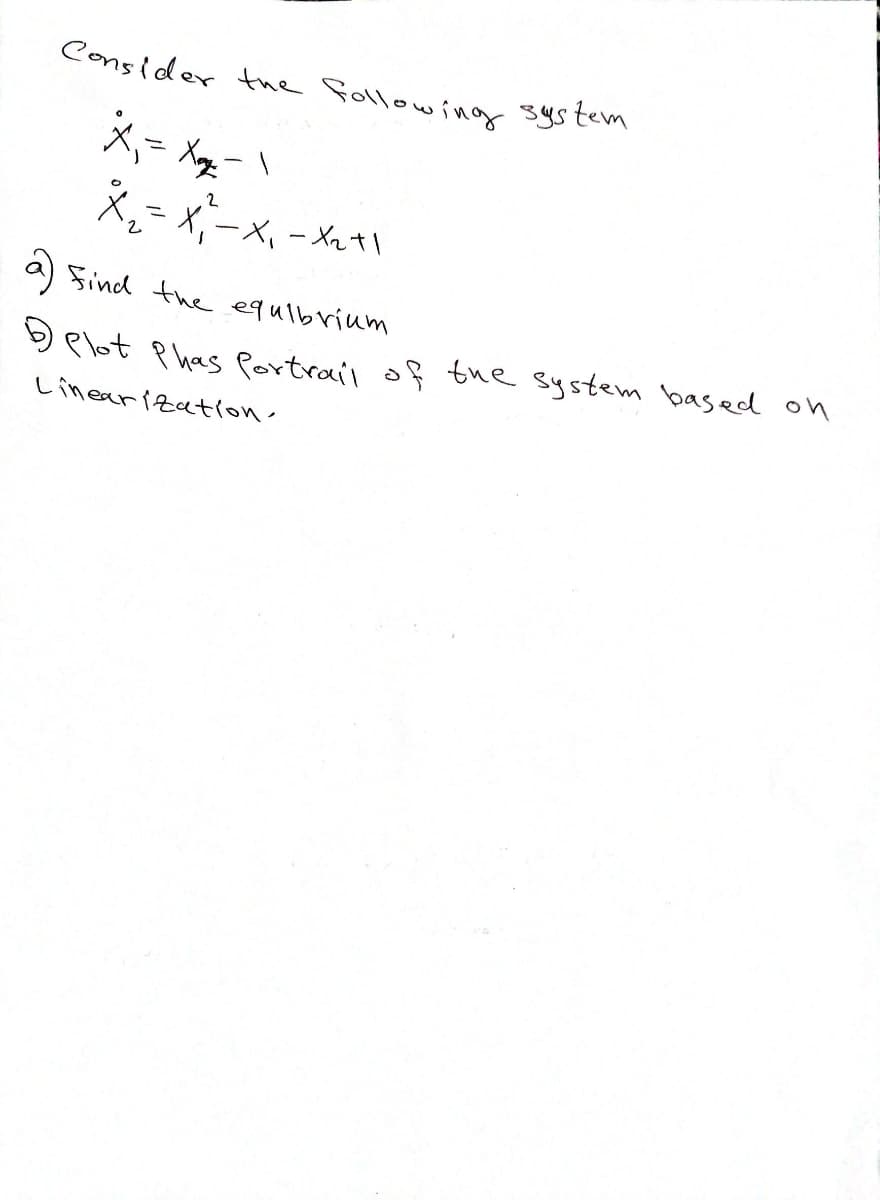 Consider the following system
ẋ₁ = x₂ - 1
ẋ₂ = x₁² - x₁ - x₂ + 1
a) Find the equlbrium
b) Plot Phas Portrail of the system based on
Linearization.